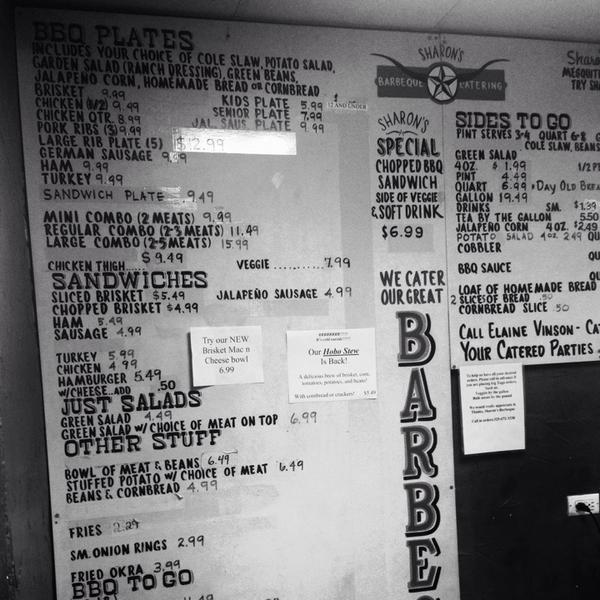 BBQ PLATES
INCLUDES YOUR CHOICE OF COLE SLAW, POTATO SALAD,
GARDEN SALAD (RANCH DRESSING), GREEN BEANS,
JALAPENO CORN, HOMEMADE BREAD OR CORNBREAD
BRISKET 9.99
CHICKEN (1/2) 9.49
CHICKEN QTR. 8.99
PORK RIBS (3) 9.99
LARGE RIB PLATE (5) $12.99
GERMAN SAUSAGE 9.99
HAM 9.99
TURKEY 9.99
SANDWICH PLATE 9.49
KIDS PLATE 5.99 12 AND UNDER
SENIOR PLATE 7.99
JAL. SAUS. PLATE 9.99
MINI COMBO (2 MEATS) 9.99
REGULAR COMBO (2-3 MEATS) 11.49
LARGE COMBO (2-5 MEATS) 15.99
CHICKEN THIGH...... $9.49
VEGGIE .......... 7.99
SANDWICHES
SLICED BRISKET $5.49
JALAPEÑO SAUSAGE 4.99
CHOPPED BRISKET $4.99
HAM 5.49
SAUSAGE 4.99
TURKEY 5.99
CHICKEN 4.99
HAMBURGER 5.49
W/CHEESE..ADD .50
JUST SALADS
GREEN SALAD 4.49
GREEN SALAD W/CHOICE OF MEAT ON TOP 6.99
OTHER STUFF
BOWL OF MEAT & BEANS 6.49
STUFFED POTATO W/ CHOICE OF MEAT 6.49
BEANS & CORNBREAD 4.99
FRIES 2.29
SM. ONION RINGS 2.99
FRIED OKRA 3.99
BBQ TO GO
Try our NEW
Brisket Mac n
Cheese bowl
6.99
Our Hobo Stew
Is Back!
A delicious brew of brisket, corn,
tomatoes, potatoes, and beans!
With cornbread or crackers! $5.49
SHARON'S
BARBEQUE CATERING
SHARON'S
SPECIAL
CHOPPED BBQ
SANDWICH
SIDE OF VEGGIE
& SOFT DRINK
$6.99
WE CATER
OUR GREAT
BARBE
MESQUIT
TRY SH
SIDES TO GO
PINT SERVES 3-4 QUART 6-8
COLE SLAW, BEANS
GREEN SALAD
4OZ. $1.99
PINT 4.49
QUART 6.99
GALLON 19.49
1/2 P
Day Old Brea
DRINKS SM. $1.39
TEA BY THE GALLON 5.50
JALAPENO CORN 4OZ. $2.49 QU
POTATO SALAD 4OZ 2.49 QU
COBBLER
BBQ SAUCE QU
LOAF OF HOMEMADE BREAD
2 SLICES OF BREAD .50
CORNBREAD SLICE .50
CALL ELAINE VINSON - CA
YOUR CATERED PARTIES